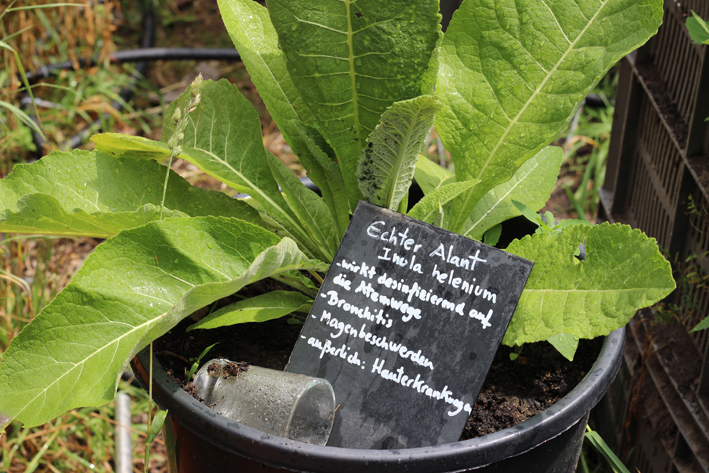 Echter Alant
Inula helenium
-wirkt desinfizierend auf
die Atemwege
-Bronchitis
-Magenbeschwerden
-äußerlich: Hauterkrankungen